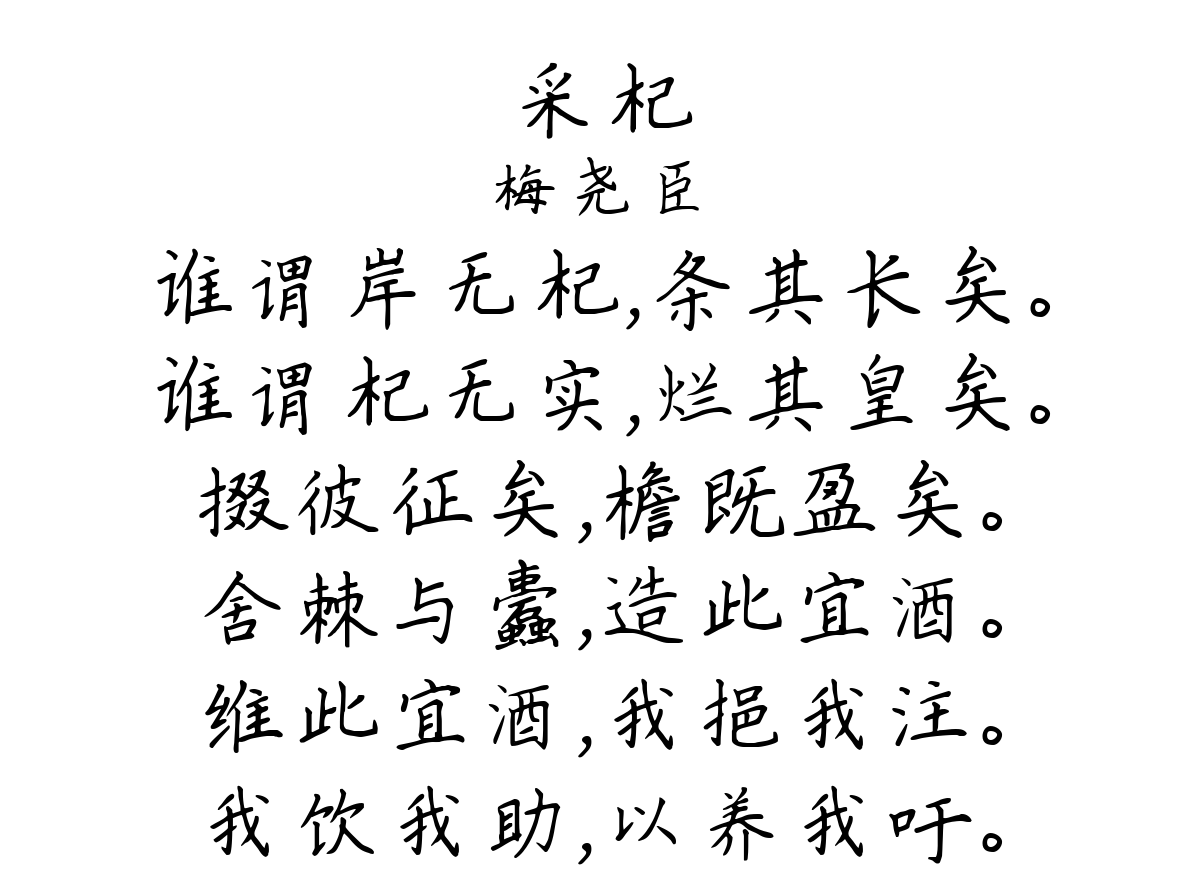 采杞
梅尧臣
谁谓岸无杞,条其长矣。
谁谓杞无实,烂其皇矣。
掇彼征矣,檐既盈矣。
舍棘与蠹,造此宜酒。
维此宜酒,我挹我注。
我饮我助,以养我吁。